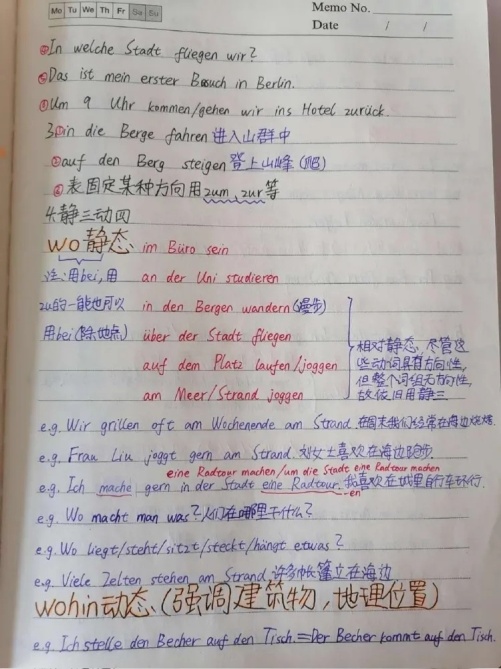 Mo Tu We Th Fr Sa Su
Memo No.
Date / /
In welche Stadt fliegen wir?
Das ist mein erster Besuch in Berlin.
Um 9 Uhr kommen/gehen wir ins Hotel zurück.
3.①in die Berge fahren 进入山群中
②auf den Berg steigen 登上山峰(爬)
③表固定某种方向用zum、zur等
4.静三动四
wo静态 im Büro sein
注:用bei,用 an der Uni studieren
zu的一般也可以 in den Bergen wandern(漫步)
用bei(除地点) über der Stadt fliegen
auf dem Platz laufen/joggen
am Meer/Strand joggen
相对静态,尽管这
些动词具有方向性,
但整个词组无方向性,
故依旧用静三
e.g. Wir grillen oft am Wochenende am Strand.在周末我们经常在海边烧烤.
e.g. Frau Liu joggt gern am Strand.刘女士喜欢在海边跑步.
eine Radtour machen/um die Stadt eine Radtour machen
e.g. Ich mache gern in der Stadt eine Radtour.我喜欢在城里自行车环行.
-en
e.g. Wo macht man was?人们在哪里干什么?
e.g. Wo liegt/steht/sitzt/steckt/hängt etwas?
e.g. Viele Zelten stehen am Strand.许多帐篷立在海边
wohin动态(强调建筑物,地理位置)
e.g. Ich stelle den Becher auf den Tisch.=Der Becher kommt auf den Tisch.